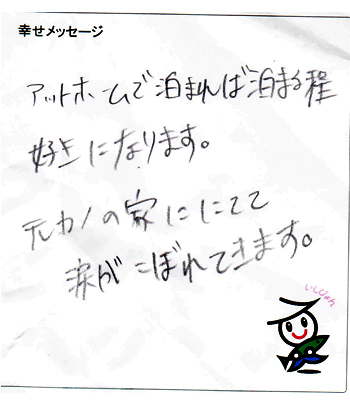 幸せメッセージ
アットホームで泊まれば泊まる程
好きになります。
元カノの家ににてて
涙がこぼれてきます。